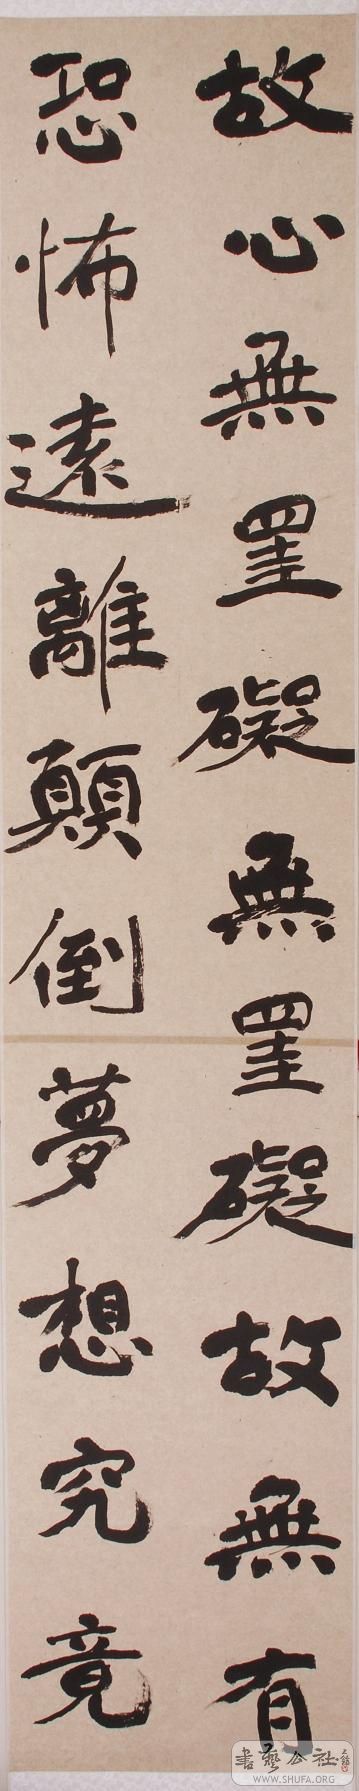 故心無罣礙無罣礙故無有
恐怖遠離顛倒夢想究竟
書藝公社
WWW.SHUFA.ORG